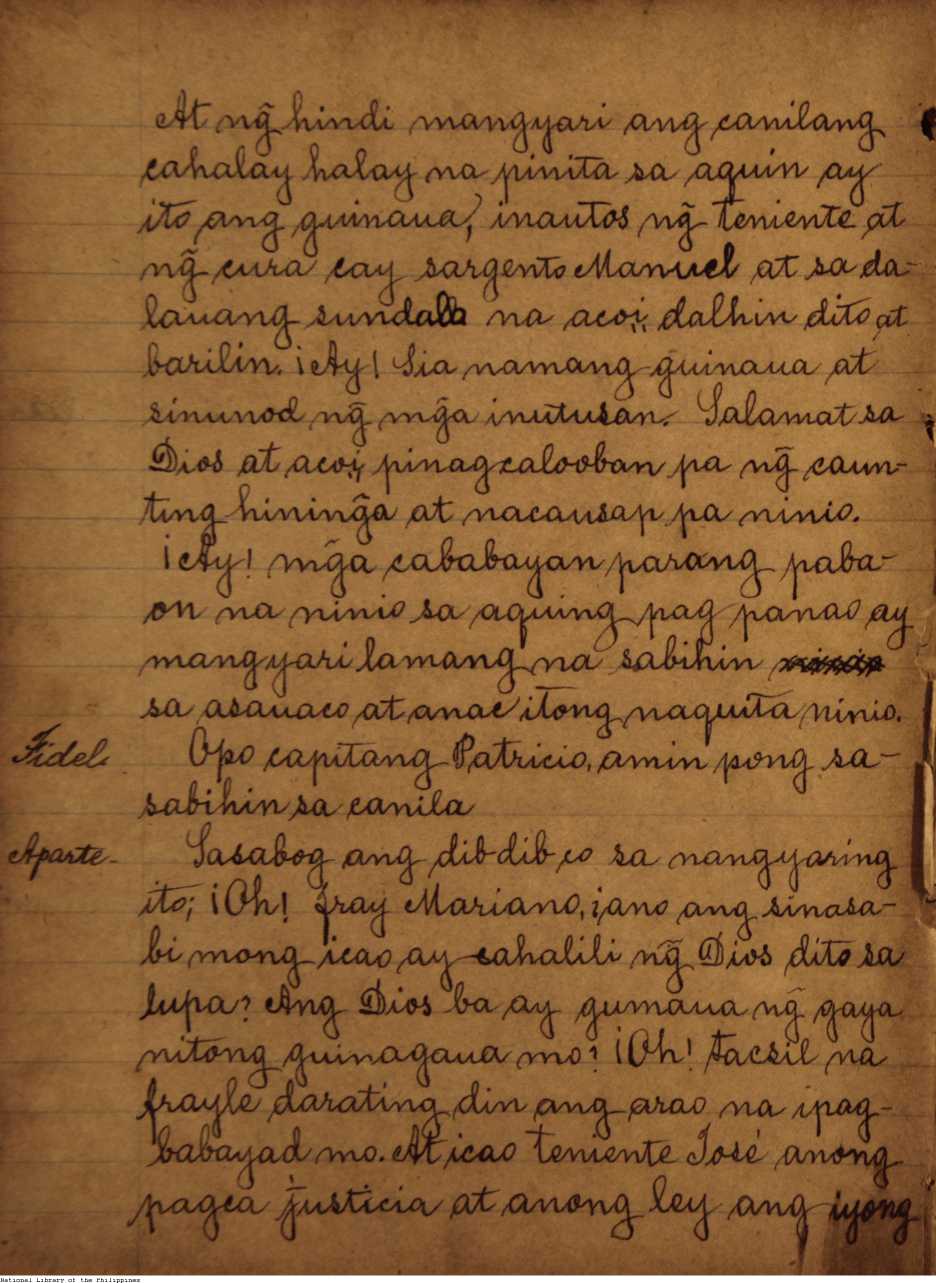 At ng̃ hindi mangyari ang canilang
cahalay halay na pinita sa aquin ay
ito ang guinaua, inautos ng̃ teniente at
ng̃ cura cay sargento Manuel at sa da-
lauang sundalo na acoi, dalhin dito at
barilin. ¡Ay! Sia namang guinaua at
sinunod ng̃ mg̃a inutusan. Salamat sa
Dios at acoi, pinagcalooban pa ng̃ caun-
ting hining̃a at nacausap pa ninio.
¡Ay! mg̃a cababayan parang paba-
on na ninio sa aquing pag panao ay
mangyari lamang na sabihin
sa asauaco at anac itong naquita ninio.
Fidel. Opo capitang Patricio, amin pong sa-
sabihin sa canila
Aparte- Sasabog ang dibdib co sa nangyaring
ito; ¡Oh! fray Mariano, ¿ano ang sinasa-
bi mong icao ay cahalili ng̃ Dios dito sa
lupa? Ang Dios ba ay gumaua ng̃ gaya
nitong guinagaua mo? ¡Oh! tacsil na
frayle darating din ang arao na ipag-
babayad mo. At icao teniente José anong
pagca justicia at anong ley ang iyong
National Library of the Philippines